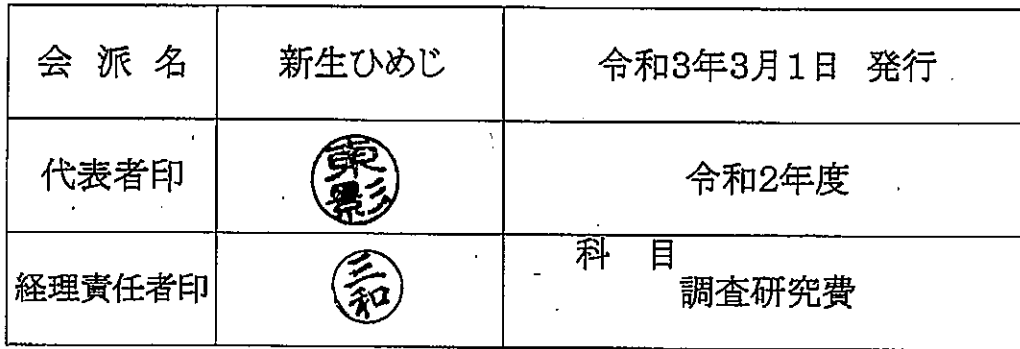 会 派 名 新生ひめじ 令和3年3月1日 発行
代表者印 東影 令和2年度
経理責任者印 三和 科 目
調査研究費